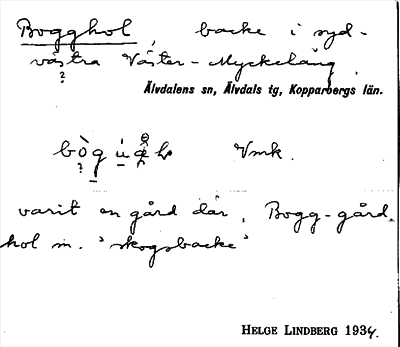 Bogghol, backe i syd-
västra Väster-Myckeläng
?
Älvdalens sn, Älvdals tg, Kopparbergs län.
Vmk.
varit en gård där, Bogg-gård.
hol m. 'skogsbacke'
HELGE LINDBERG 1934.